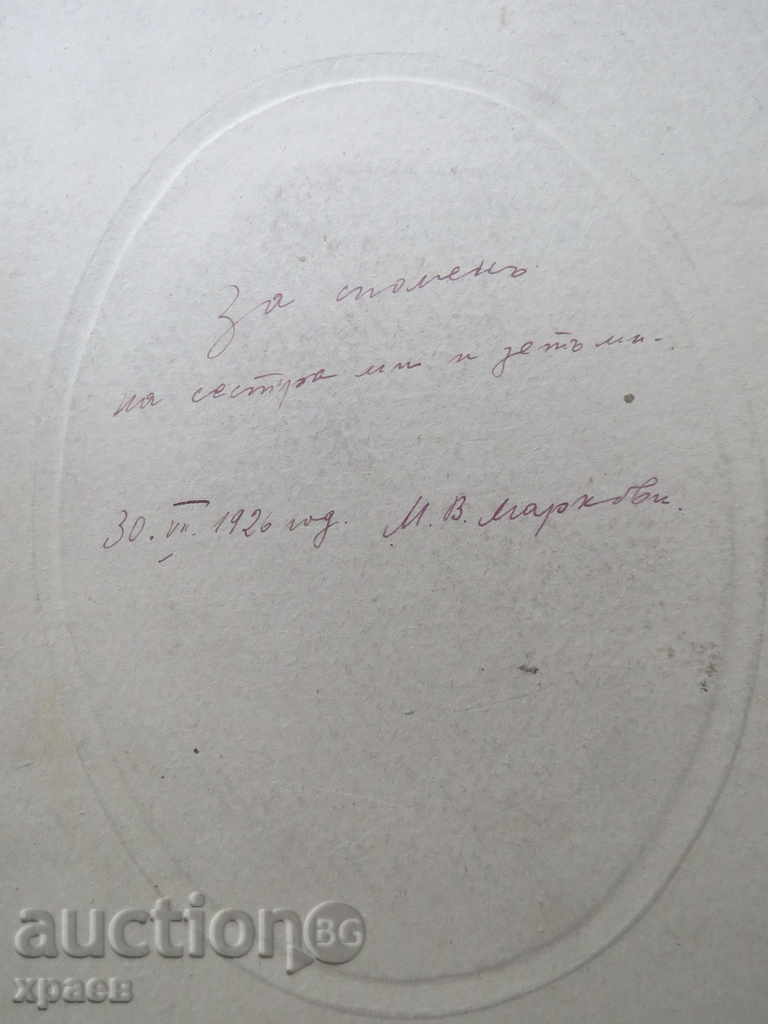 За споменъ
на сестра ми и зетъ ми.
30. VII. 1926 год. М. В. Маркови.
auction BG
храев